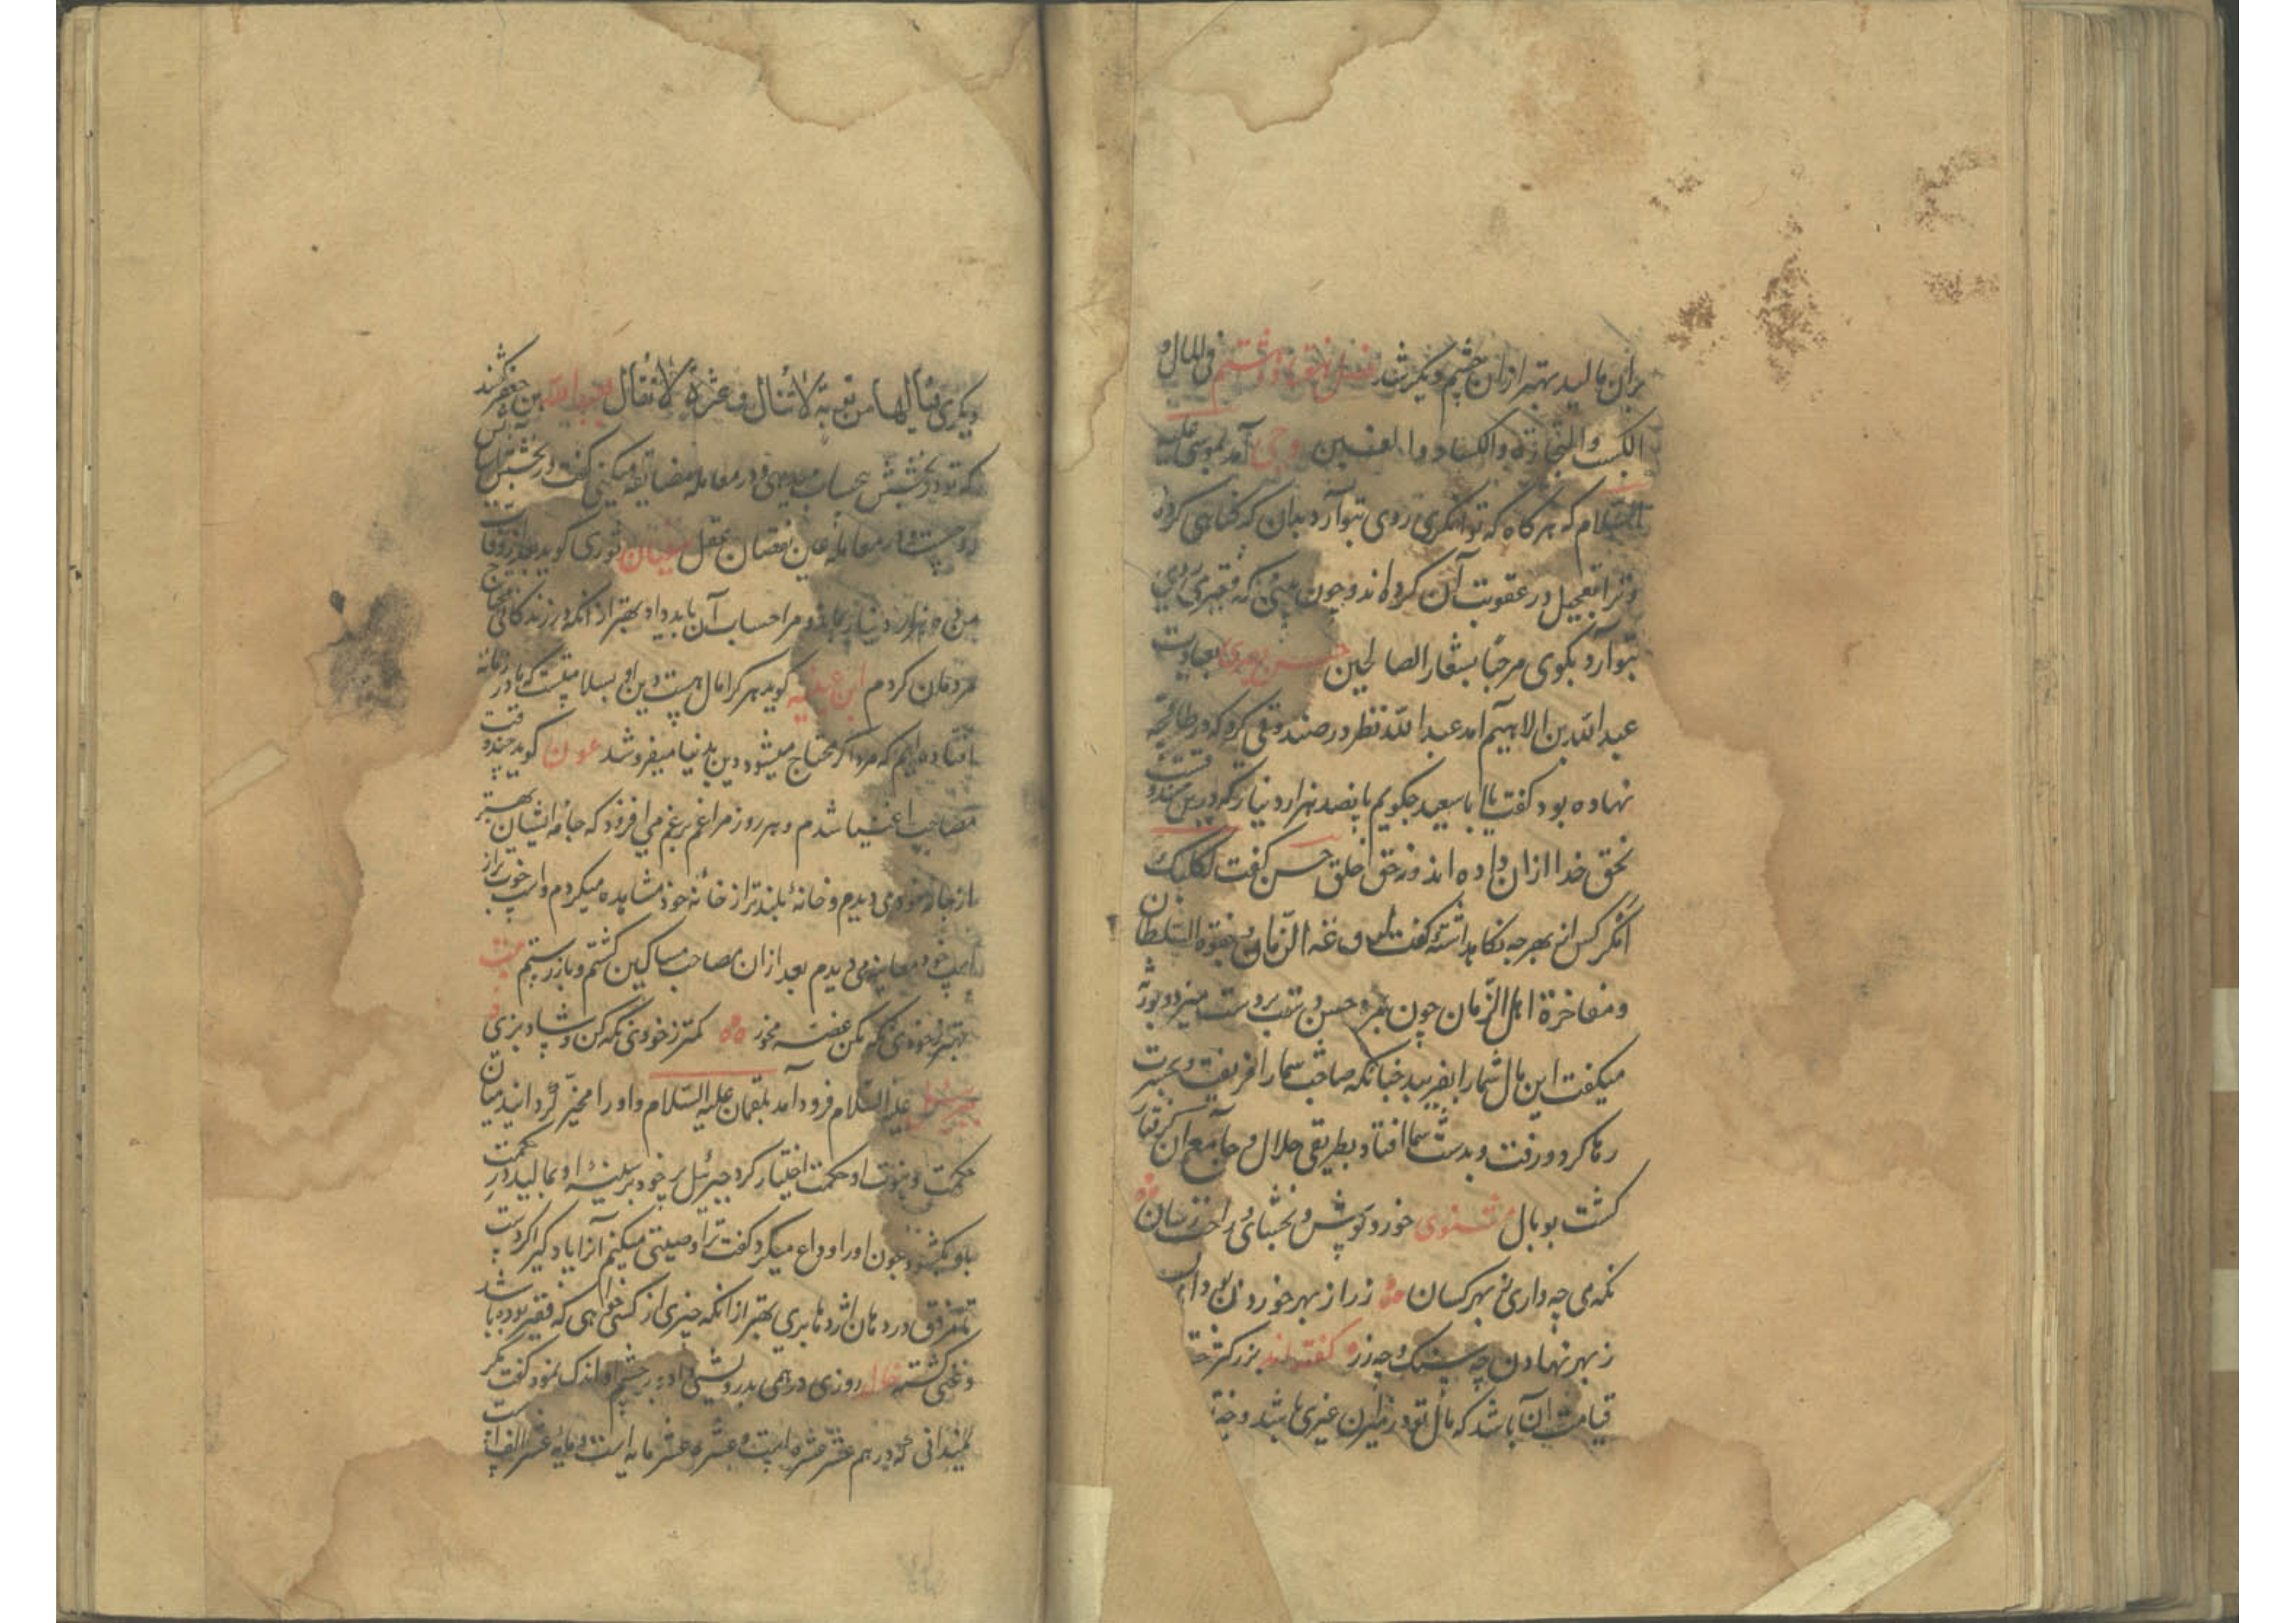 بران مالید بهتر ازان چشم دیگر شد فصل هفتاد و هشتم فی المال و
الکسب و التجارة و الکساد و الغنیین وحی آمد بموسی علیه
السلام که هرگاه که توانگری روی بتو آرد بدان که گناهی کردۀ
و ترا تعجیل در عقوبت آن کرده اند و چون بینی که فقیری روی
بتو آرد بگوی مرحبا بشعار الصالحین حسن بصری بعیادت
عبد الله بن الاهیم آمد عبد الله نظر در صندوقی کرد که در طاقچه
نهاده بود گفت یا ابا سعید چگویم با پانصد هزار دینار که درین صندوقست
نحق خدا ازان داده اند و نه حق خلق حسن گفت ثکلتک
امک از بهر چه نگاهداشتۀ گفت الزمان و جفوة السلطان
و مفاخرة اهل الزمان چون بمرد حسن دست بر دست میزد و بورثه
میگفت این مال شما را نفریبد چنانکه صاحب شما را فریفت و بحسرت
رها کرد و رفت و بدست شما افتاد بطریقی حلال و جامع آن گرفتار
گشت بوبال مثنوی خور و پوش و بخشای و راحت رسان
نگه می چه داری ز بهر کسان زر از بهر خوردن بود ای
ز بهر نهادن چه سنگ و چه زر گفته اند بزرکتر
قیامت آن باشد که مال تو در میزان غیری باشد و
دیگری قتالها من توبة لا تنال و عثرة لا تقال عبد الله بن جعفر گفتند
که تو در بخشش بیحساب میدهی و در معامله مضایقه میکنی گفت در بخشش
و در معامله عین نقصان عقل سفیان ثوری گوید بعد از وفات
من ده هزار دینار بماند و مرا حساب آن باید داد بهتر از آنکه در زندگانی محتاج
مردمان گردم گوید هر کرا مال هست دین او بسلامتست که ما در زمانه
افتاده ایم که مرد اگر محتاج میشود دین بدنیا میفروشد عون گوید چند وقت
مصاحب اغنیا شدم و هر روز مرا غم بر غم می افزود که جامه ایشان بهتر
از جامه خود می دیدم و خانۀ بلندتر از خانه خود مشاهده میکردم و اسپ خوبتر از
اسپ خود معاینه می دیدم بعد ازان مصاحب مساکین گشتم و باز رستم بیت
بهتر ز خودی نگه مکن غصه مخور کمتر ز خودی نگه کن و شاد بزی
جبرئیل علیه السلام فرود آمد بلقمان علیه السلام و او را مخیر گردانید میان
حکمت و نبوت او حکمت اختیار کرد جبرئیل پر خود بر سینه او بمالید در حکمت
باو بگشود چون او را وداع میکرد گفت ترا وصیتی میکنم آنرا یاد گیر اگر دست
تا مرفق در دهان اژدها بری بهتر از آنکه چیزی از کسی خواهی که فقیر بوده باشد
و غنی گشته روزی درهمی بدرویشی داد در چشم او اندک نمود گفت مگر
نمیدانی که درهم عشر عشره است و عشره عشر مایه است و مایه عشر الف است